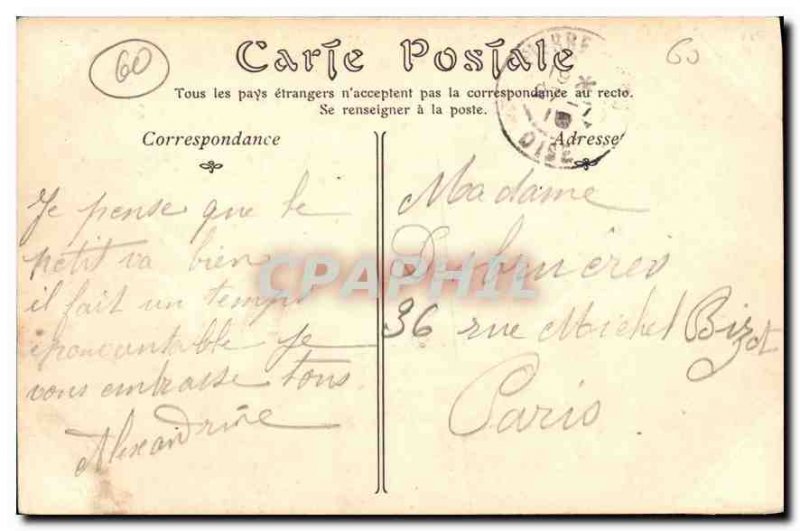 60
Carte Postale
60
Tous les pays étrangers n'acceptent pas la correspondance au recto.
Se renseigner à la poste.
OISE
Correspondance
Adresse
Je pense que le
petit va bien
il fait un temps
Je
vous embrasse tous
Alexandrine
Madame
36 rue Michel Bizot
Paris
CPAPHIL